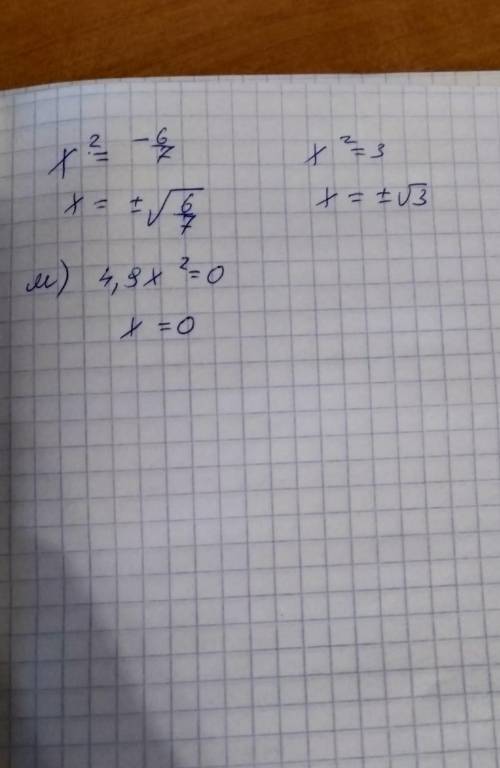 x² = -6/7
x = ±√(6/7)
x² = 3
x = ±√3
м) 4,9x² = 0
x = 0